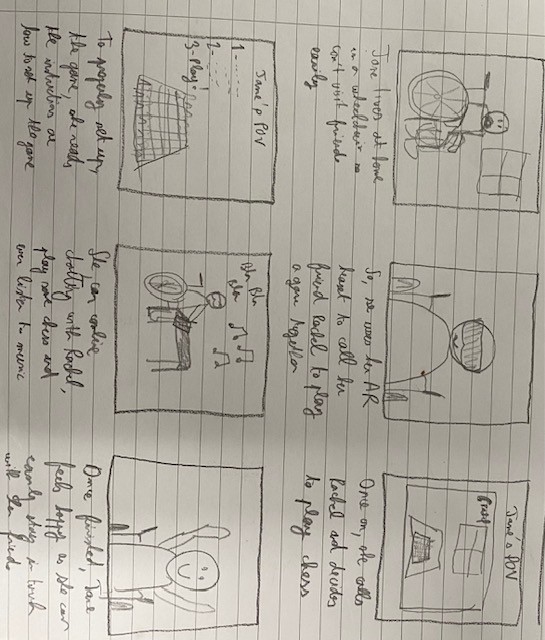 Jane lives at home
in a wheelchair so
can't visit friends
easily
So, she uses her AR
headset to call her
friend Rachel to play
a game together
Jane's POV
Once on, she calls
Rachel and decides
to play chess
Jane's POV
1-
2-
3- play!
To properly set up
the game, she reads
the instructions on
how to set up the game
Bla Bla
Bla
She can continue
chatting with Rachel,
play some chess and
even listen to music
Once finished, Jane
feels happy as she can
easily stay in touch
with her friends